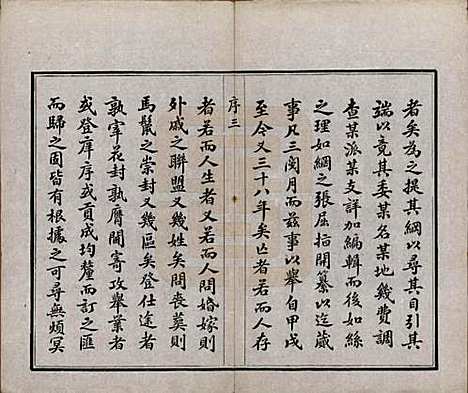 者矣為之提其綱以尋其目引其
端以竟其委某名某地幾費調
查某派某支詳加編輯而後如絲
之理如綱之張屈指開纂以迄蕆
事凡三閱月而茲事以舉自甲戌
至今又三十八年矣亡者若而人存
序三
者若而人生者又若而人問婚嫁則
外戚之聯盟又幾姓矣問喪葬則
馬鬣之崇封又幾區矣登仕途者
孰宰花封孰膺閫寄攻舉業者
或登庠序或貢成均釐而訂之匯
而歸之固皆有根據之可尋無煩冥